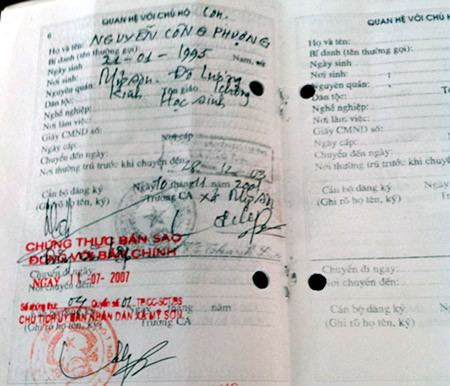 6
QUAN HỆ VỚI CHỦ HỘ: Con.
Họ và tên: NGUYỄN CÔNG PHƯỢNG
Bí danh (tên thường gọi): Nam, nữ
Ngày sinh 21-01-1995
Nơi sinh: Mỹ Sơn. Đô Lương
Nguyên quán:
Dân tộc: Kinh Tôn giáo không
Nghề nghiệp: Học sinh
Nơi làm việc:
Giấy CMND số:
Ngày cấp: Nơi cấp
Chuyển đến ngày: 28-12-03
Nơi thường trú trước khi chuyển đến:
Ngày 10 tháng 11 năm
Cán bộ đăng ký Trưởng CA xã Mỹ Sơn
(Ghi rõ họ tên, ký)
CHỨNG THỰC BẢN SAO
ĐÚNG VỚI BẢN CHÍNH
Chuyển đi ngày:
NGÀY 11-07-2007
Nơi chuyển đến:
Số chứng thực 04 Quyển số: 01 TP/CC-SCT/BS
tháng năm
CHỦ TỊCH ỦY BAN NHÂN DÂN XÃ MỸ SƠN
(Ghi rõ họ tên, ký) Trưởng CA
QUAN HỆ VỚI CHỦ H
Họ và tên:
Bí danh (tên thường gọi):
Ngày sinh
Nơi sinh:
Nguyên quán:
Dân tộc: T
Nghề nghiệp:
Nơi làm việc:
Giấy CMND số:
Ngày cấp:
Chuyển đến ngày:
Nơi thường trú trước khi chuyển
Ngày
Cán bộ đăng ký
(Ghi rõ họ tên, ký)
Chuyển đi ngày:
Nơi chuyển đến:
Ngày
Cán bộ đăng ký
(Ghi rõ họ tên, ký)